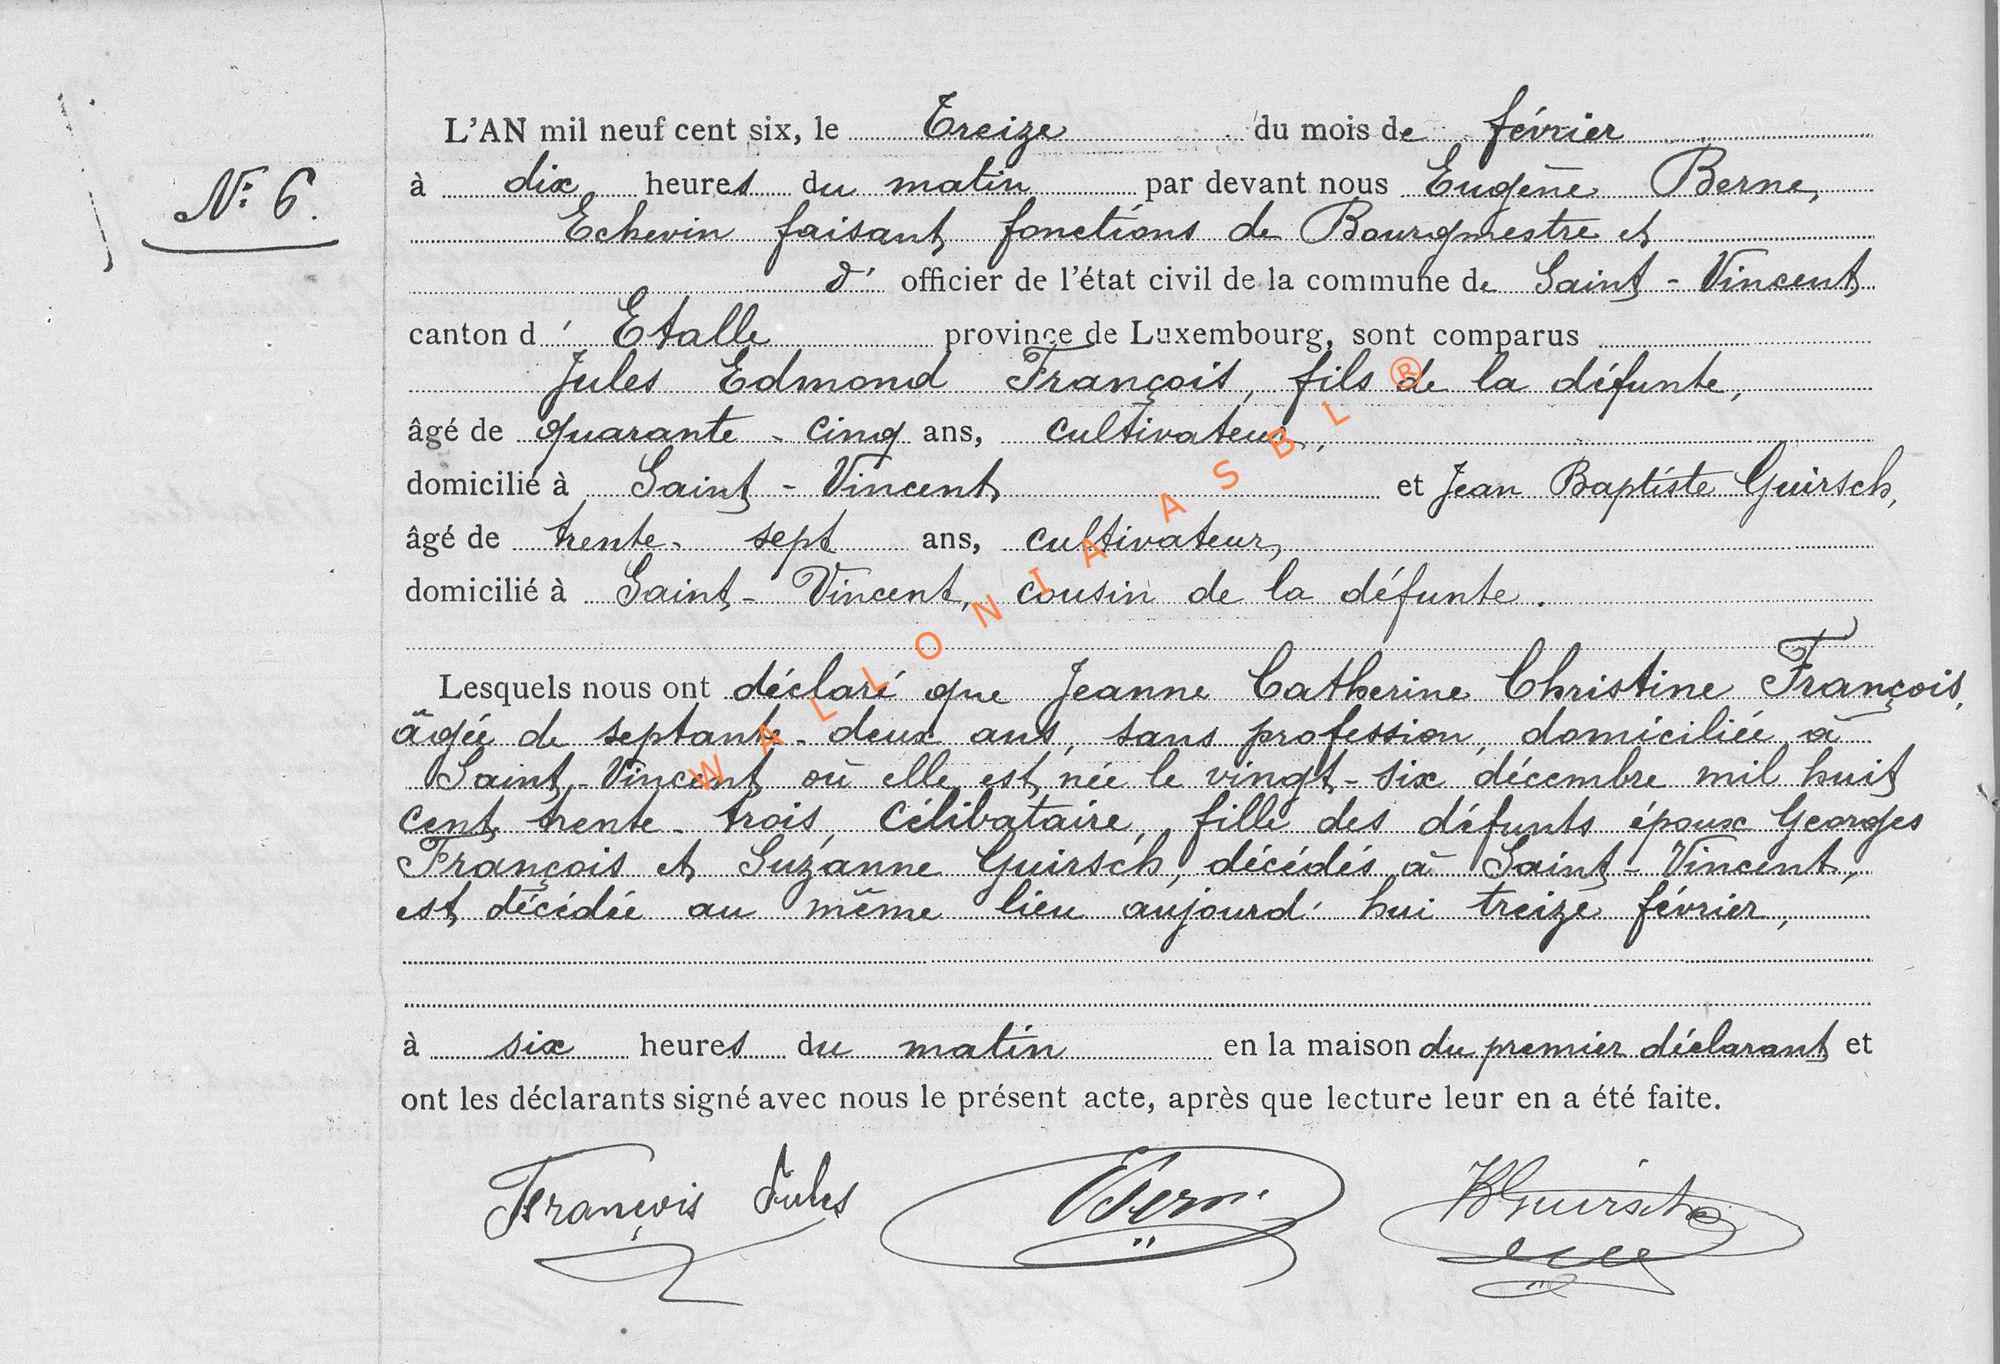 N° 6.
L'AN mil neuf cent six, le Treize du mois de février
à dix heures du matin par devant nous Eugène Berne,
Echevin faisant fonctions de Bourgmestre et
d' officier de l'état civil de la commune de Saint-Vincent
canton d' Etalle province de Luxembourg, sont comparus
Jules Edmond François, fils de la défunte,
âgé de quarante-cinq ans, cultivateur,
domicilié à Saint-Vincent et Jean Baptiste Guirsch,
âgé de trente-sept ans, cultivateur,
domicilié à Saint-Vincent, cousin de la défunte.
Lesquels nous ont déclaré que Jeanne Catherine Christine François,
âgée de septante-deux ans, sans profession, domiciliée à
Saint-Vincent où elle est née le vingt-six décembre mil huit
cent trente-trois, célibataire, fille des défunts époux Georges
François et Suzanne Guirsch, décédés à Saint-Vincent,
est décédée au même lieu aujourd'hui treize février,
à six heures du matin en la maison du premier déclarant et
ont les déclarants signé avec nous le présent acte, après que lecture leur en a été faite.
François Jules EBerne JBGuirsch
WALLONIA ASBL ®